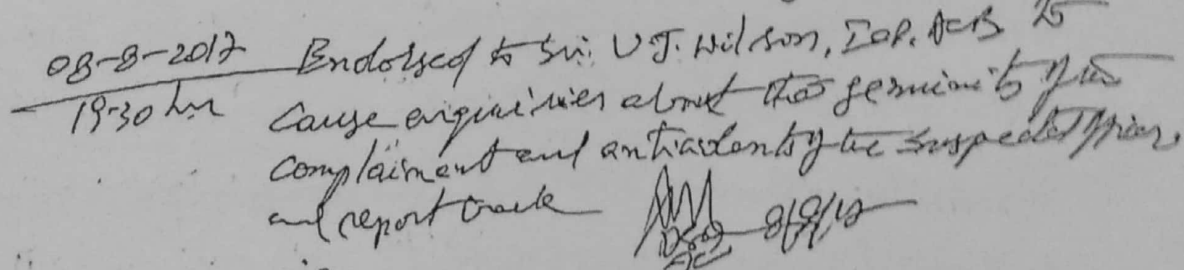 08-8-2017 Endorsed to Sri. U.J. Wilson, IOP. ACB to
19-30 hrs cause enquiries about the genuinity of the
complainant and anticidents of the suspected officer,
and report back
DSP 8/8/17